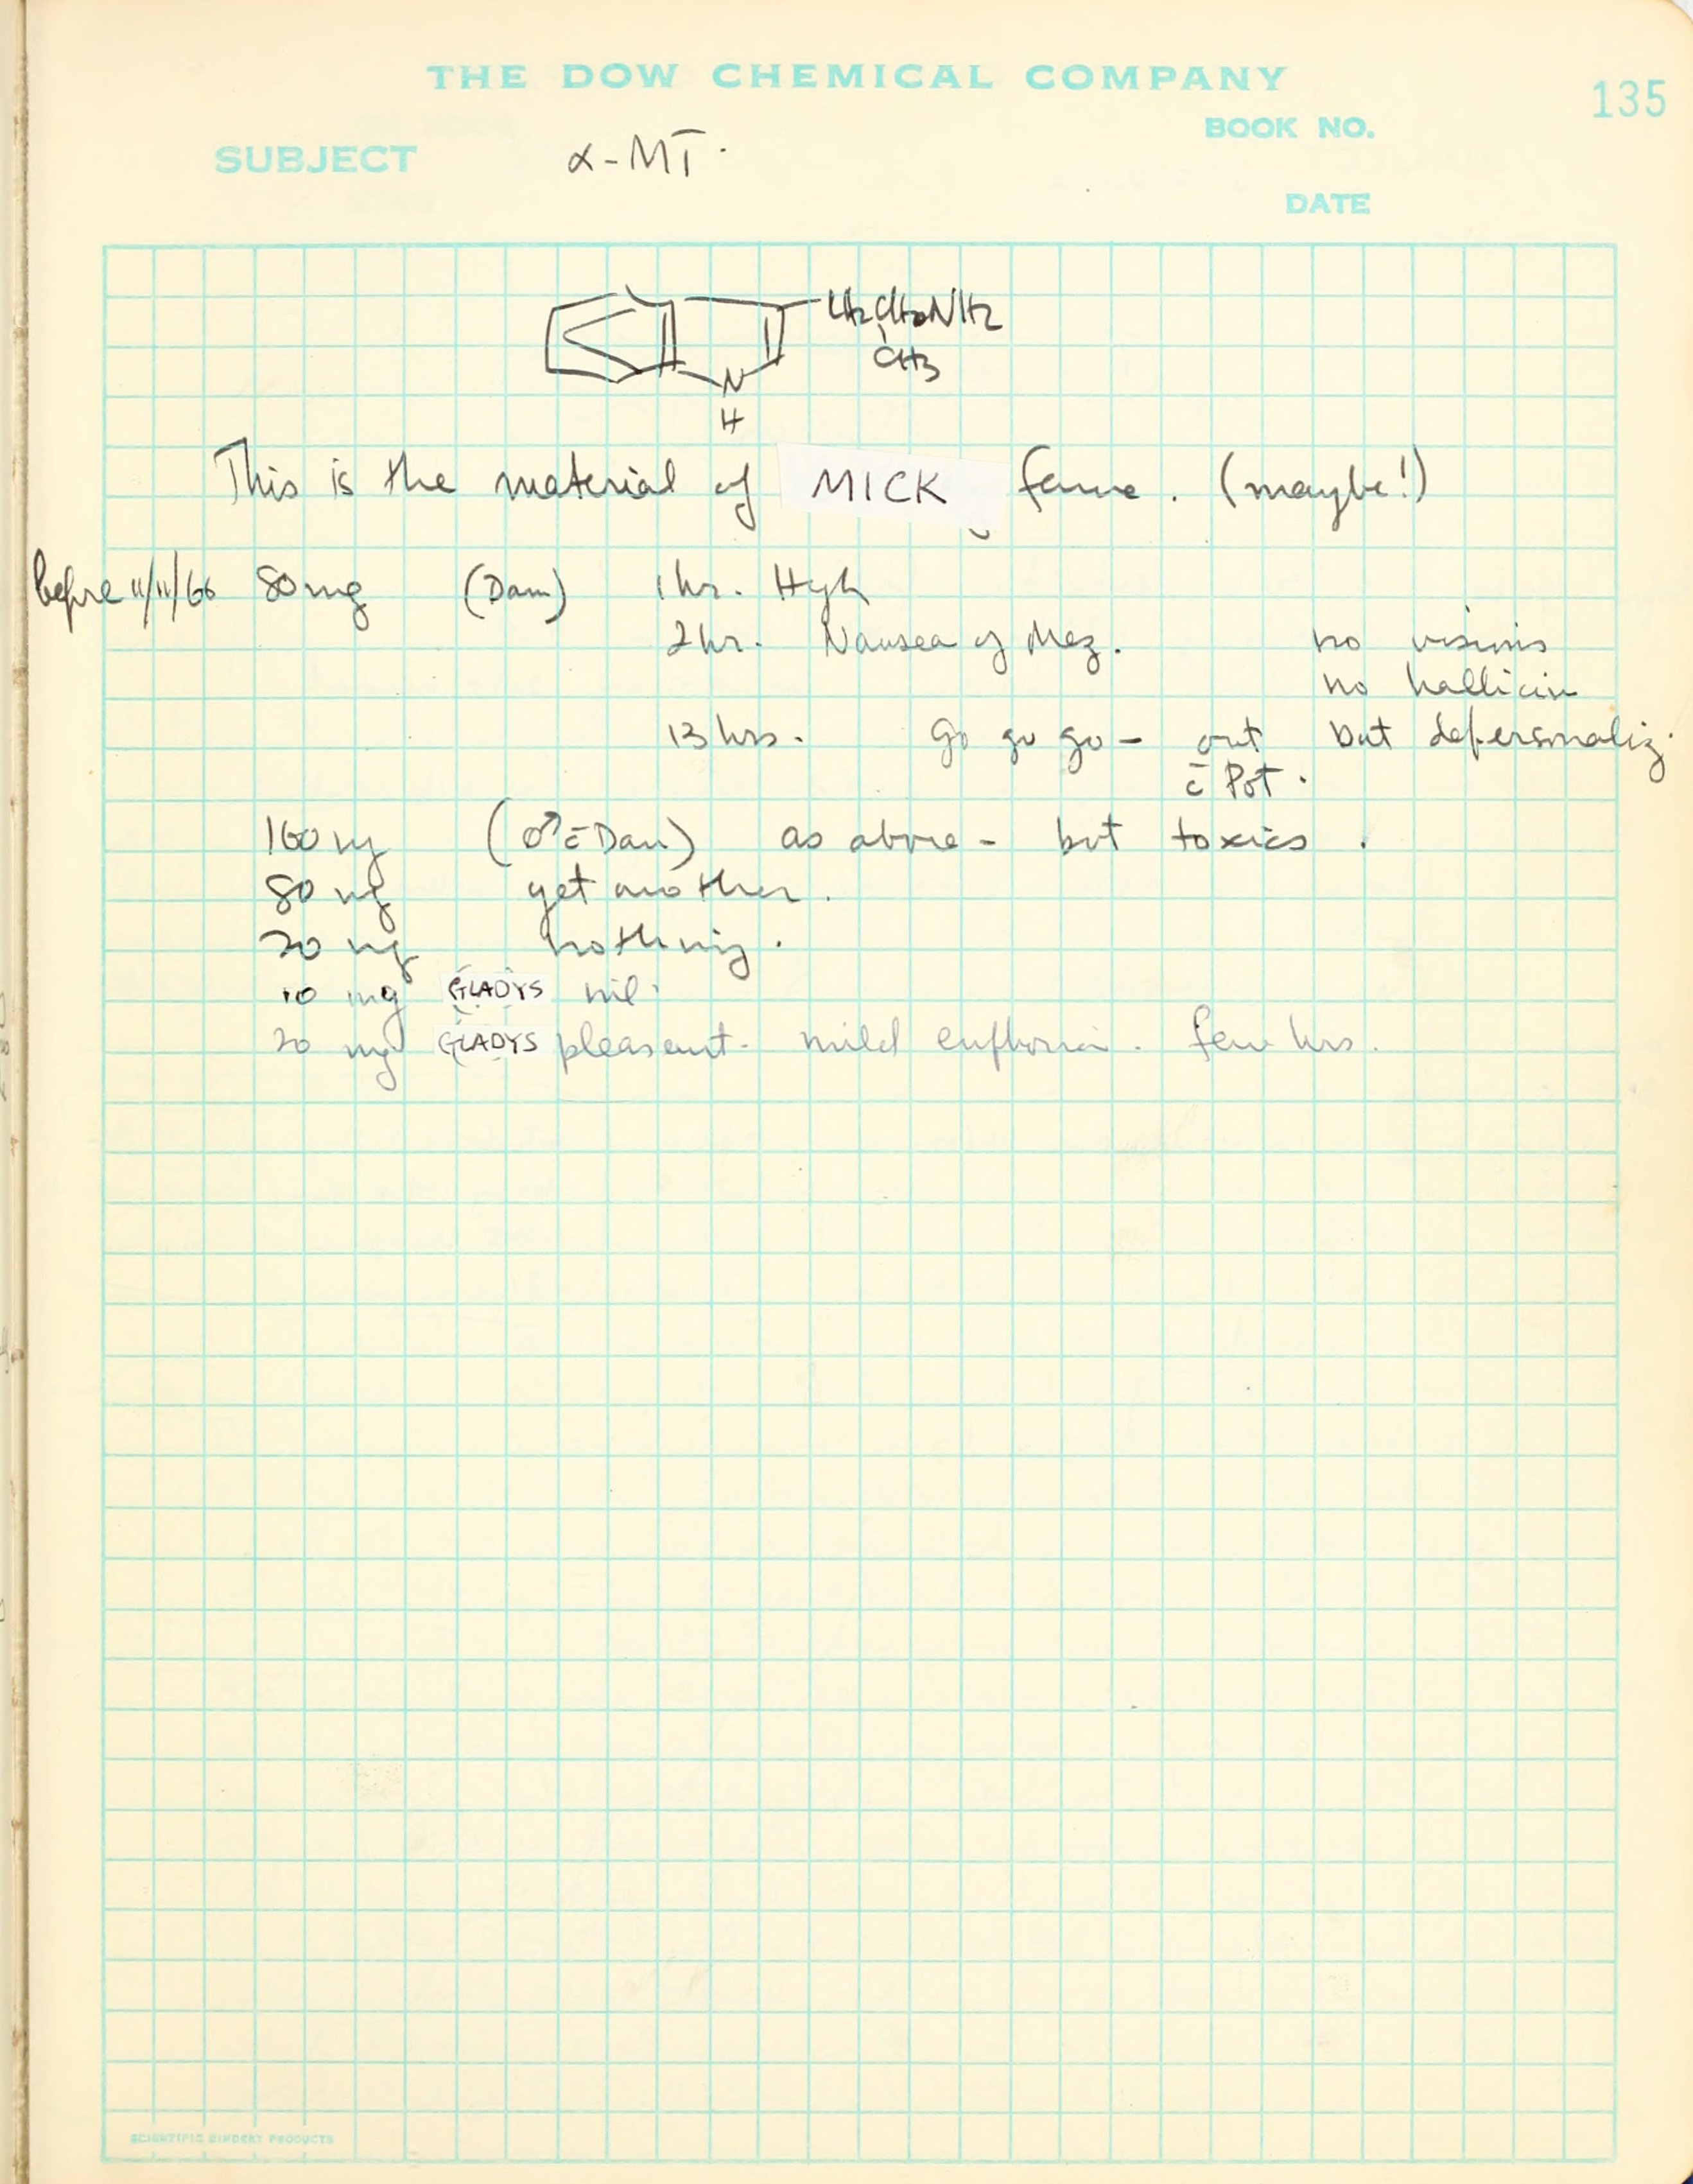 THE DOW CHEMICAL COMPANY
135
BOOK NO.
SUBJECT α-MT.
DATE
CH2CHNH2
CH3
N
H
This is the material of MICK fame. (maybe!)
before 11/11/66 80 mg (Dan) 1 hr. High
2 hr. Nausea of Mez. no visions
no hallicin
13 hrs. Go go go - out but depersonaliz.
c̄ Pot.
160 mg (♂ c̄ Dan) as above - but toxics.
80 mg yet another.
20 mg nothing.
10 mg GLADYS nil.
20 mg GLADYS pleasant. mild euphoria. few hrs.
SCIENTIFIC BINDERY PRODUCTS